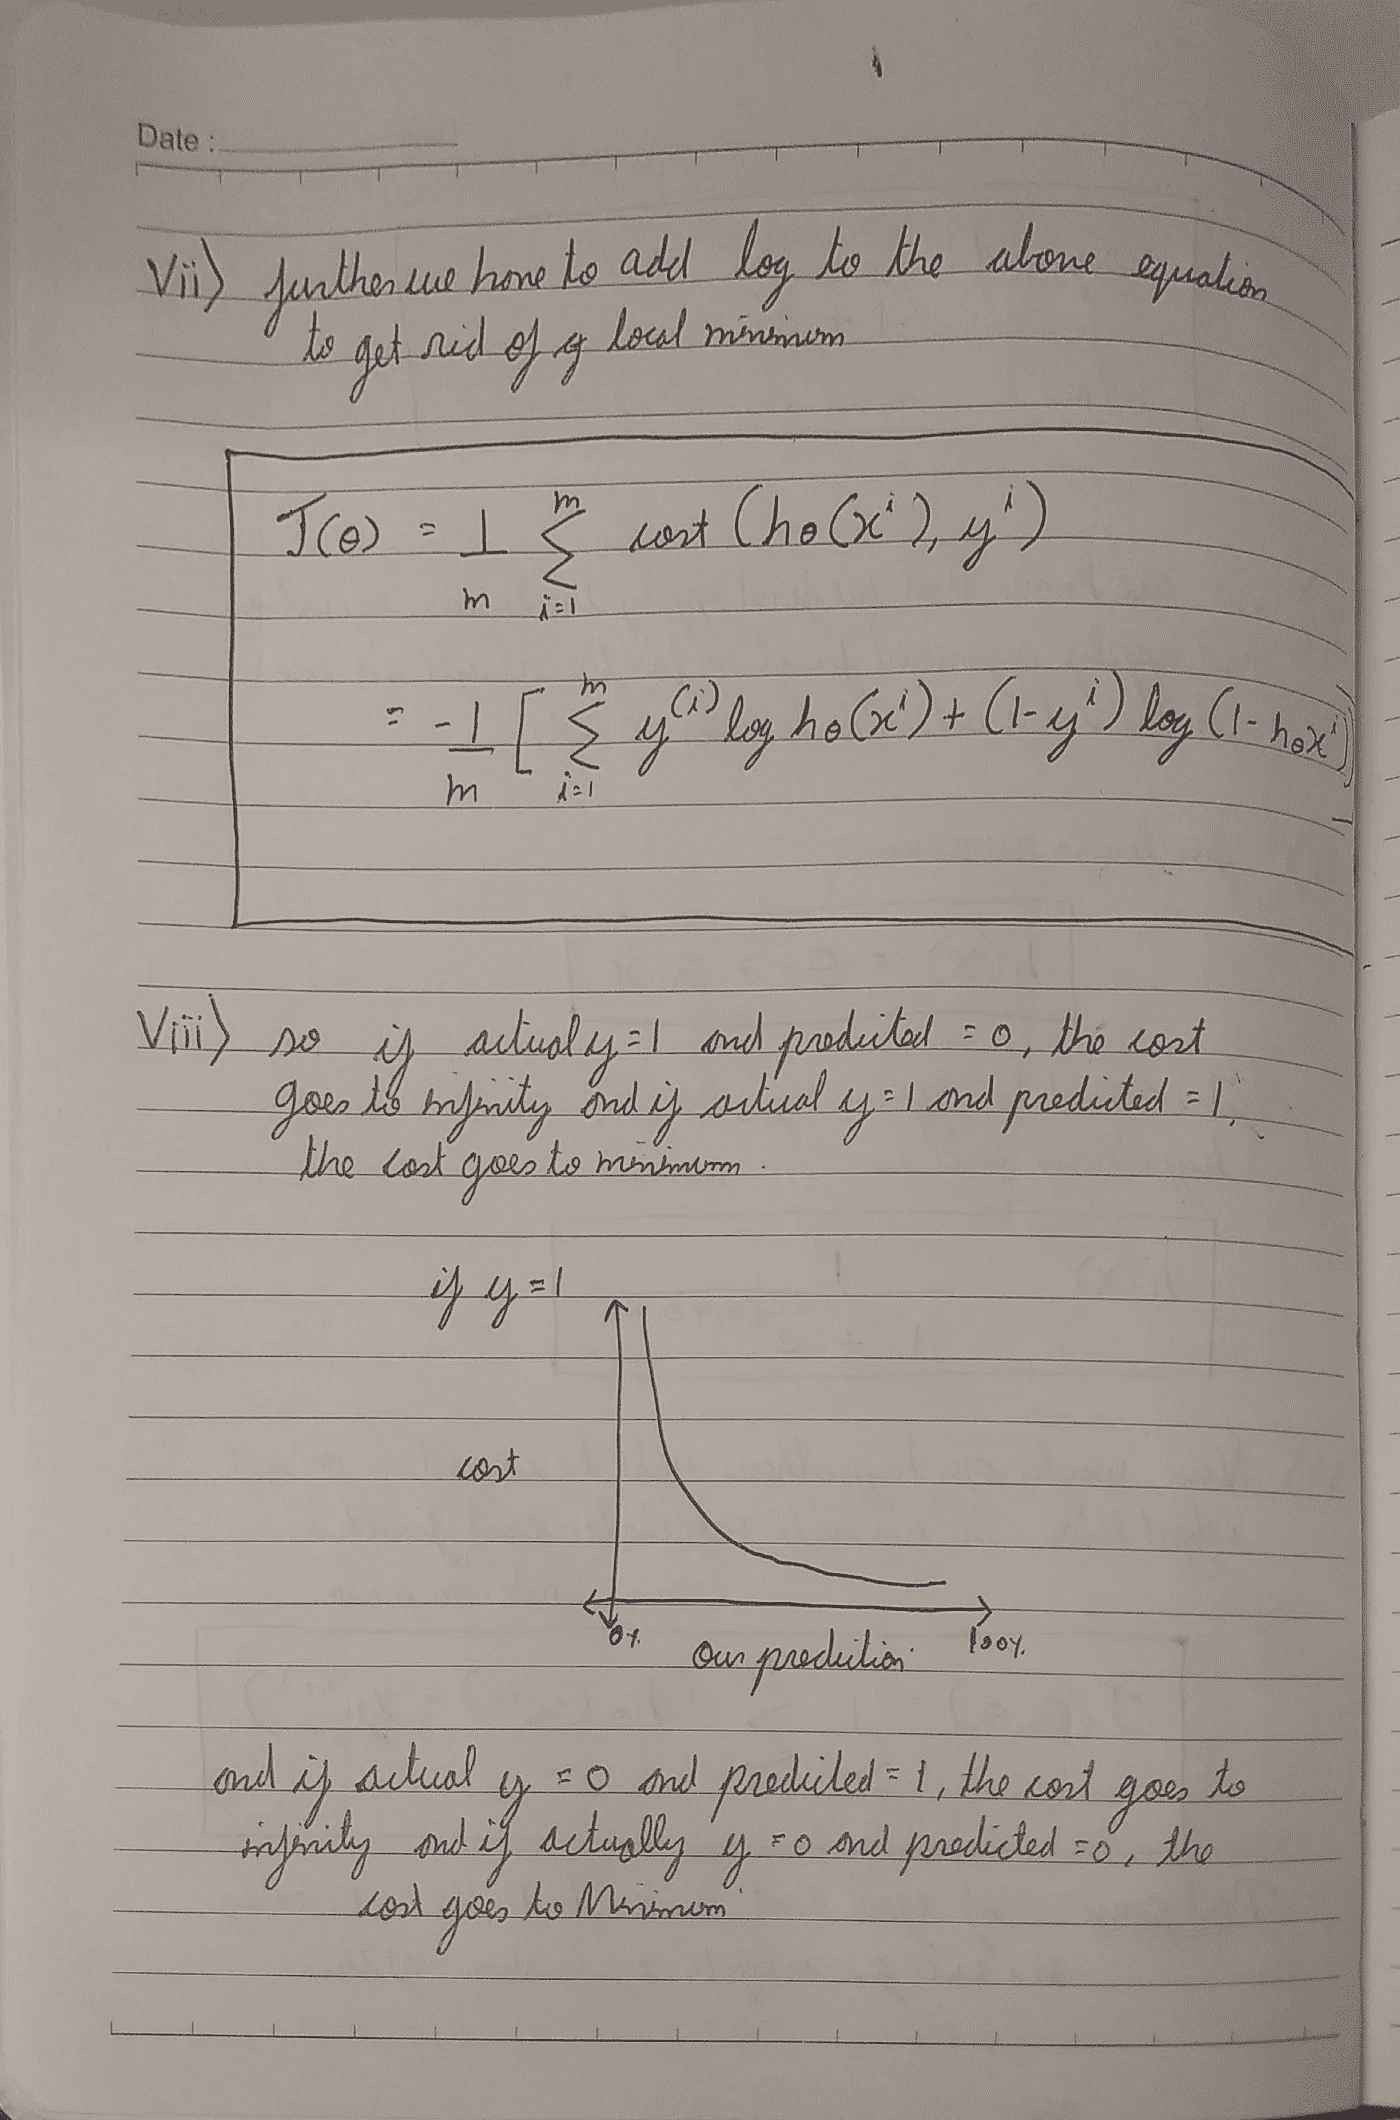 Date :
Vii) further we have to add log to the above equation
to get rid of local minimum
J(θ) = 1/m Σ_{i=1}^{m} cost (hθ(x^i), y^i)
= -1/m [ Σ_{i=1}^{m} y^(i) log hθ(x^i) + (1-y^i) log (1-hθx^i)]
Viii) so if actual y=1 and predicted = 0, the cost
goes to infinity and if actual y=1 and predicted = 1,
the cost goes to minimum.
if y=1
cost
0%
100%
Our prediction
and if actual y = 0 and predicted = 1, the cost goes to
infinity and if actually y = 0 and predicted = 0, the
cost goes to Minimum